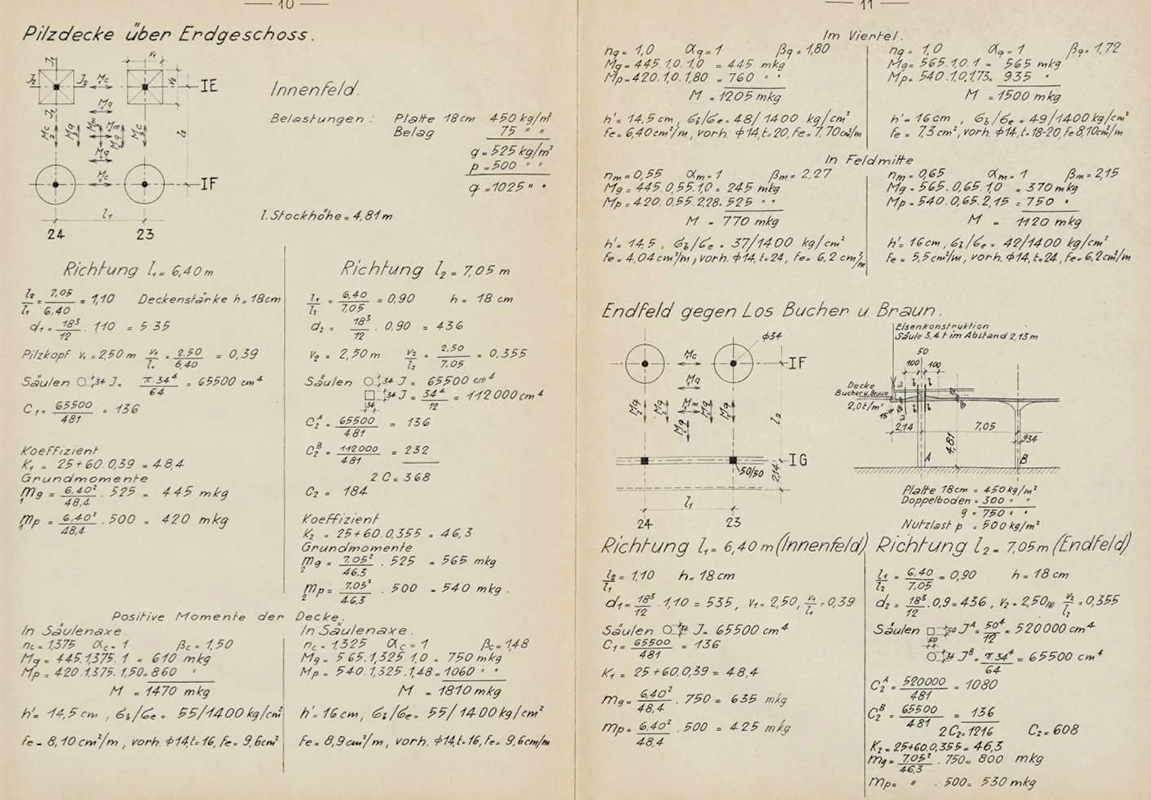 — 10 —
Pilzdecke über Erdgeschoss.
IE
IF
l₁
24 23
Innenfeld.
Belastungen: Platte 18cm 450 kg/m²
Belag 75 " "
g = 525 kg/m²
p = 500 " "
q = 1025 " "
l. Stockhöhe = 4,81 m
Richtung l₁ = 6,40 m
l₂/l₁ = 7,05/6,40 = 1,10 Deckenstärke h = 18cm
d₁ = 18³/12 . 110 = 535
Pilzkopf v₁ = 2,50 m v₁/l₁ = 2,50/6,40 = 0,39
Säulen ○ 34 J = π 34⁴/64 = 65500 cm⁴
C₁ = 65500/481 = 136
Koeffizient
K₁ = 25+60.0,39 = 48.4
Grundmomente
mg = 6,40²/48,4 . 525 = 445 mkg
mp = 6,40²/48,4 . 500 = 420 mkg
Richtung l₂ = 7,05 m
l₁/l₂ = 6,40/7,05 = 0,90 h = 18 cm
d₂ = 18³/12 . 0,90 = 436
v₂ = 2,50 m v₂/l₂ = 2,50/7,05 = 0,355
Säulen ○ 34 J = 65500 cm⁴
□ 34 J = 34⁴/12 = 112000 cm⁴
C₂ᴬ = 65500/481 = 136
C₂ᴮ = 112000/481 = 232
2 C = 368
C₂ = 184
Koeffizient
K₂ = 25+60.0,355 = 46,3
Grundmomente
mg = 7.05²/46.3 . 525 = 565 mkg
mp = 7.05²/46.3 . 500 = 540 mkg.
Positive Momente der Decke.
In Säulenaxe.
nc = 1,375 αc = 1 βc = 1,50
Mg = 445.1,375.1 = 610 mkg
Mp = 420.1,375.1,50 = 860 "
M = 1470 mkg
h' = 14,5 cm, σb/σe = 55/1400 kg/cm²
fe = 8,10 cm²/m, vorh. φ14, t=16, fe = 9,6cm²
In Säulenaxe.
nc = 1.325 αc = 1 βc = 1,48
Mg = 565.1,325 1,0 = 750 mkg
Mp = 540.1,325.1,48 = 1060 "
M = 1810 mkg
h' = 16 cm, σb/σe = 55/1400 kg/cm²
fe = 8,9 cm²/m, vorh. φ14, t=16, fe = 9,6cm²/m
— 11 —
Im Viertel.
nq = 1,0 αq = 1 βq = 1,80
Mg = 445.1,0.1,0 = 445 mkg
Mp = 420.1,0.1,80 = 760 " "
M = 1205 mkg
h' = 14,5 cm, σb/σe = 48/1400 kg/cm²
fe = 6,40cm²/m, vorh. φ14, t=20, fe = 7.70cm²/m
nq = 1,0 αq = 1 βq = 1,72
Mg = 565.1,0.1 = 565 mkg
Mp = 540.1,0,1,73 = 935 "
M = 1500 mkg
h' = 16cm, σb/σe = 49/1400 kg/cm²
fe = 7.3 cm², vorh. φ14, t=18-20, fe 8,10cm²/m
In Feldmitte
nm = 0,55 αm = 1 βm = 2,27
Mg = 445.0,55.1,0 = 245 mkg
Mp = 420.0,55.2,28 = 525 " "
M = 770 mkg
h' = 14,5, σb/σe = 37/1400 kg/cm²
fe = 4,04cm²/m, vorh. φ14, t=24, fe = 6,2 cm²/m
nm = 0,65 αm = 1 βm = 2,15
Mg = 565.0,65.1,0 = 370 mkg
Mp = 540.0,65.2,15 = 750 "
M = 1120 mkg
h' = 16cm, σb/σe = 42/1400 kg/cm²
fe = 5,5cm²/m, vorh. φ14, t=24, fe = 6,2cm²/m
Endfeld gegen Los Bucher u. Braun.
φ34
IF
l₂
IG
50/50
2,14
l₁
24 23
Eisenkonstruktion
Säule 3,4 t im Abstand 2,13 m
50
100 100
Decke
Bucher u. Braun
2,0 t/m'
2,14 7,05
4,81
φ34
A B
Platte 18cm = 450 kg/m²
Doppelboden = 300 " "
g = 750 " "
Nutzlast p = 500 kg/m²
Richtung l₁ = 6,40 m (Innenfeld)
l₂/l₁ = 1,10 h = 18cm
d₁ = 18³/12 . 1,10 = 535, v₁ = 2,50, v₁/l₁ = 0,39
Säulen ○ 34 J = 65500 cm⁴
C₁ = 65500/481 = 136
K₁ = 25+60.0,39 = 48.4
mg = 6,40²/48,4 . 750 = 635 mkg
mp = 6.40²/48,4 . 500 = 425 mkg
Richtung l₂ = 7,05 m (Endfeld)
l₁/l₂ = 6,40/7,05 = 0,90 h = 18 cm
d₂ = 18³/12 . 0,9 = 436, v₂ = 2,50m, v₂/l₂ = 0,355
Säulen □ 50 Jᴬ = 50⁴/12 = 520000 cm⁴
○ 34 Jᴮ = π 34⁴/64 = 65500 cm⁴
C₂ᴬ = 520000/481 = 1080
C₂ᴮ = 65500/481 = 136
2C₂ = 1216 C₂ = 608
K₂ = 25+60.0,355 = 46,3
mg = 7.05²/46,3 . 750 = 800 mkg
mp = " . 500 = 530 mkg